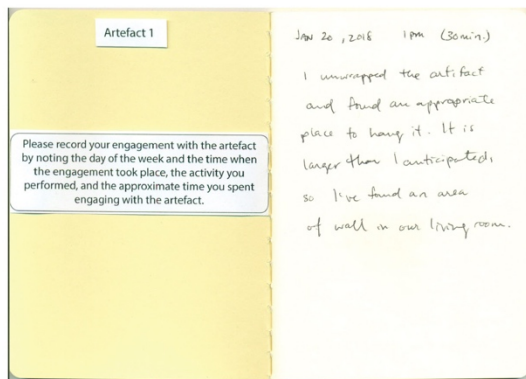 Artefact 1
Please record your engagement with the artefact
by noting the day of the week and the time when
the engagement took place, the activity you
performed, and the approximate time you spent
engaging with the artefact.
JAN 20, 2018 1pm (30min.)
I unwrapped the artifact
and found an appropriate
place to hang it. It is
larger than I anticipated,
so I've found an area
of wall in our living room.